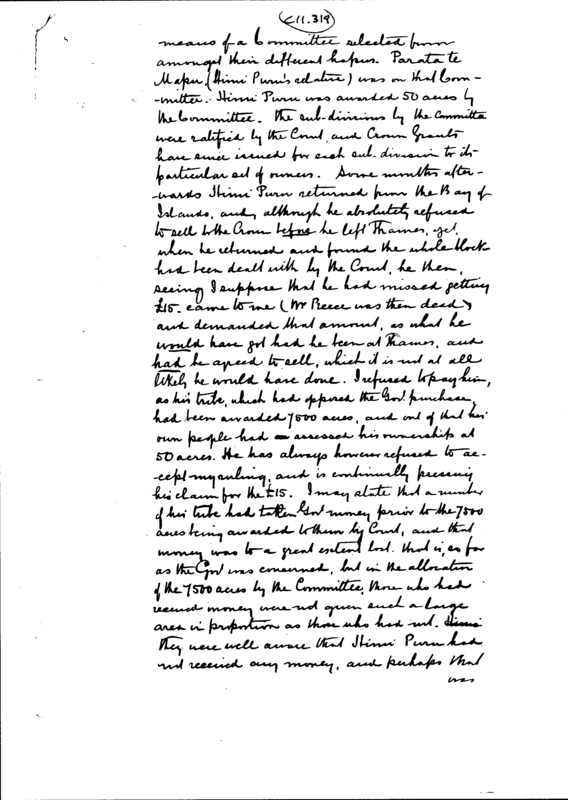 C11.319
means of a Committee selected from
amongst their different hapus. Parata te
Mapu (Himi Puru's relative) was on that Com-
-mittee. Himi Puru was awarded 50 acres by
the Committee. The sub-divisions by the Committee
were ratified by the Court, and Crown Grants
have since issued for each sub-division to its
particular set of owners. Some months after-
-wards Himi Puru returned from the Bay of
Islands, and, although he absolutely refused
to sell to the Crown before he left Thames, yet,
when he returned and found the whole block
had been dealt with by the Court, he then,
seeing I suppose that he had missed getting
£15. came to me (Mr Preece was then dead)
and demanded that amount, as what he
would have got had he been at Thames, and
had he agreed to sell, which it is not at all
likely he would have done. I refused to pay him,
as his tribe, which had opposed the Govt purchase,
had been awarded 7500 acres, and out of that his
own people had assessed his ownership at
50 acres. He has always however refused to ac-
-cept my ruling, and is continually pressing
his claim for the £15. I may state that a number
of his tribe had taken Govt money prior to the 7500
acres being awarded to them by Court, and that
money was to a great extent lost. that is, as far
as the Govt was concerned, but in the allocation
of the 7500 acres by the Committee, those who had
received money were not given such a large
area in proportion as those who had not. Himi
They were well aware that Himi Puru had
not received any money, and perhaps that
was